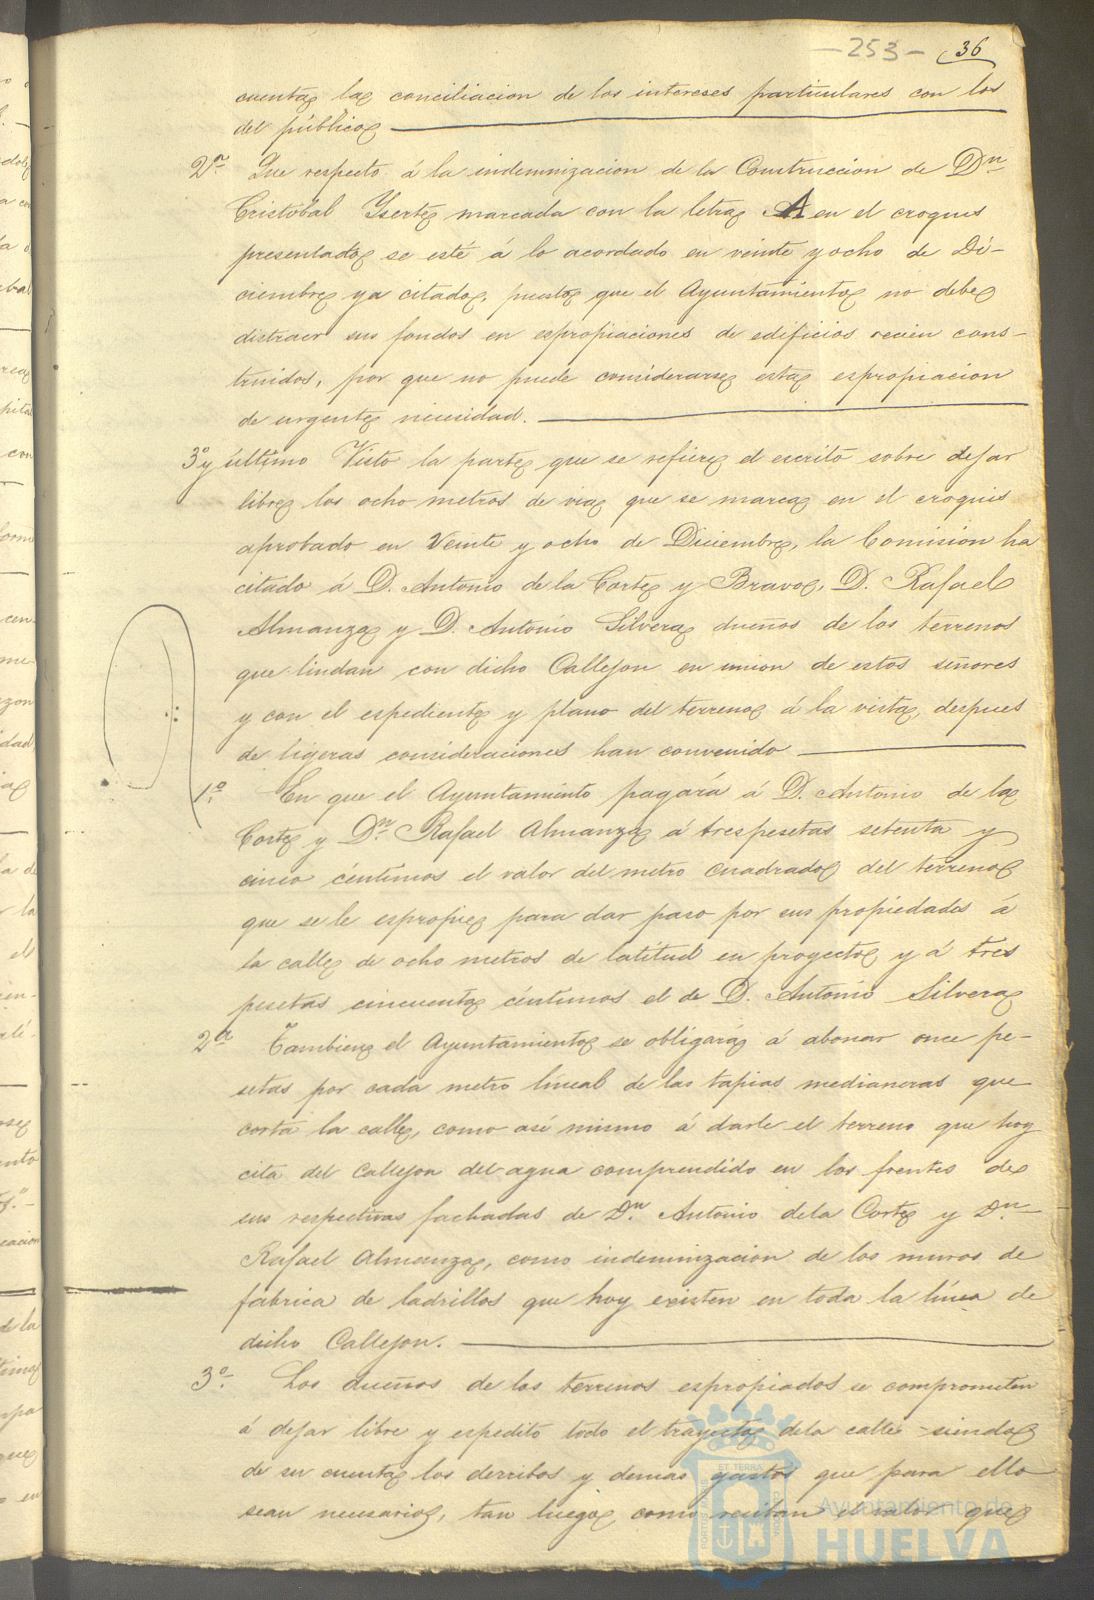 - 253 - 36
cuenta la conciliacion de los intereses particulares con los
del público
2ª Que respecto á la indemnizacion de la Construccion de Dn
Cristóbal Yserte marcada con la letra A en el croquis
presentado se esté á lo acordado en veinte y ocho de Di-
ciembre ya citado, puesto que el Ayuntamiento no debe
distraer sus fondos en espropiaciones de edificios recien cons-
truidos, por que no puede considerarse esta espropiacion
de urgente necesidad.
3º y último Visto la parte que se refiere el escrito sobre dejar
libre los ocho metros de via que se marca en el croquis
aprobado en Veinte y ocho de Diciembre, la Comision ha
citado á D. Antonio de la Corte y Bravo, D. Rafael
Almanza y D. Antonio Silvera dueños de los terrenos
que lindan con dicho Callejon en union de estos señores
y con el espediente y plano del terreno á la vista, despues
de ligeras consideraciones han convenido
1º. En que el Ayuntamiento pagará á D. Antonio de la
Corte y Dn Rafael Almanza á tres pesetas setenta y
cinco céntimos el valor del metro cuadrado del terreno
que se le espropie para dar paso por sus propiedades á
la calle de ocho metros de latitud en proyecto y á tres
pesetas cincuenta céntimos el de D. Antonio Silvera
2ª Tambien el Ayuntamiento se obligará á abonar once pe-
setas por cada metro líneal de las tapias medianeras que
corta la calle, como asi mismo á darle el terreno que hoy
cita del Callejon del agua comprendido en los frentes de
sus respectivas fachadas de Dn. Antonio dela Corte y Dn.
Rafael Almanza, como indemnizacion de los muros de
fabrica de ladrillos que hoy existen en toda la línea de
dicho Callejon.
3º. Los dueños de los terrenos espropiados se comprometen
á dejar libre y espedito todo el trayecto dela calle siendo
de su cuenta los derribos y demas gastos que para ello
sean necesarios, tan luego como reciban el valor que
Ayuntamiento de
HUELVA